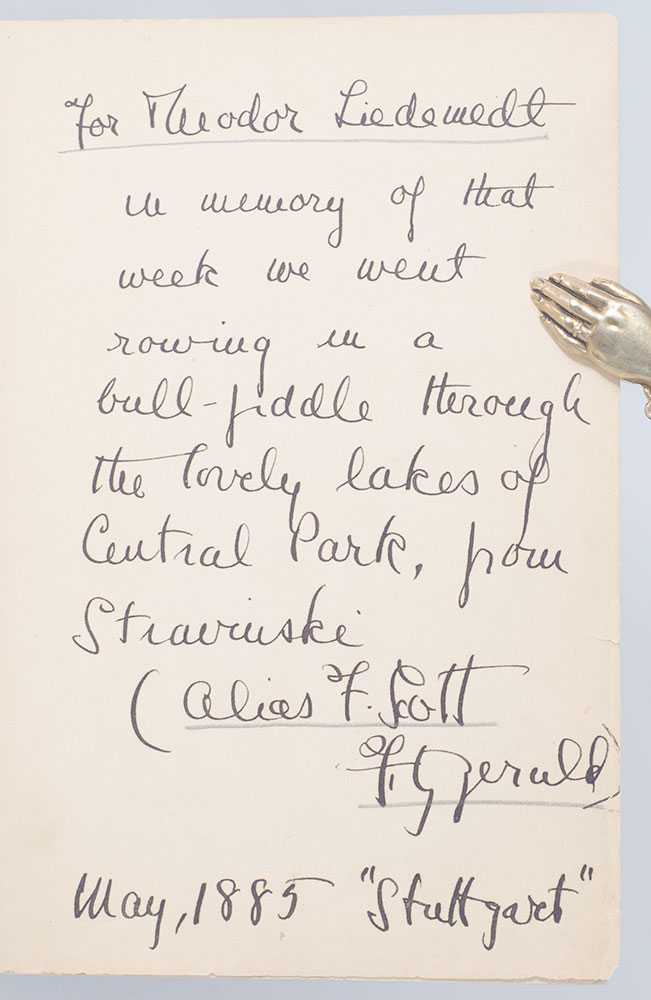 For Theodor Liedemedt
in memory of that
week we went
rowing in a
bull-fiddle through
the lovely lakes of
Central Park, from
Stravinski
(alias F. Scott
Fitzgerald)
May, 1885 "Stuttgart"